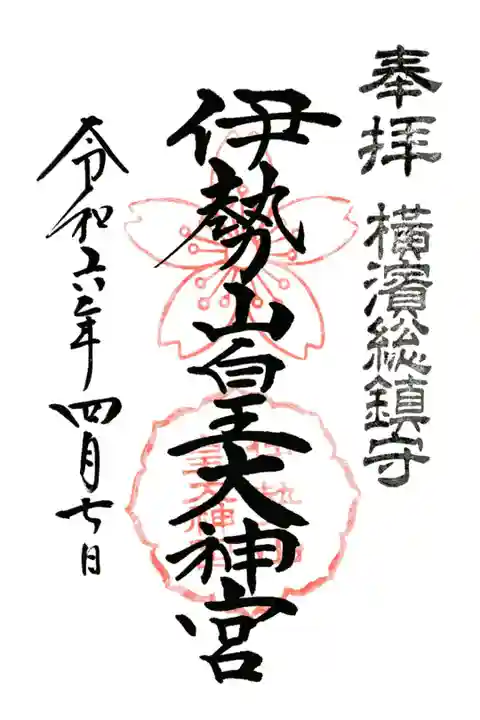 奉拝 横濱総鎮守
伊勢山皇大神宮
令和六年四月七日